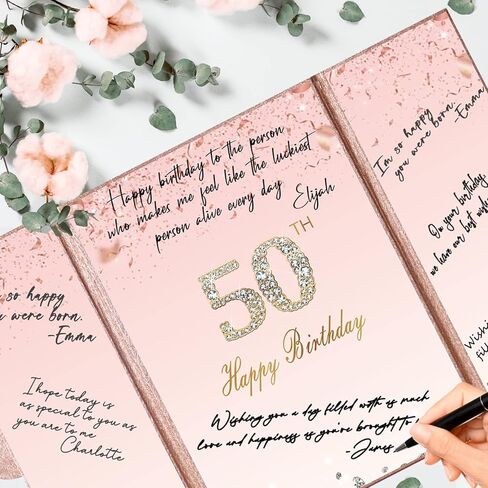 Happy birthday to the person
who makes me feel like the luckiest
person alive every day
Elijah
50TH
Happy Birthday
Wishing you a day filled with as much
love and happiness as you've brought to
-James
so happy
were born.
-Emma
I hope today is
as special to you as
you are to me
Charlotte
I'm so happy
you were born.
-Emma
On your birthday,
we have our best wishes
Wishing